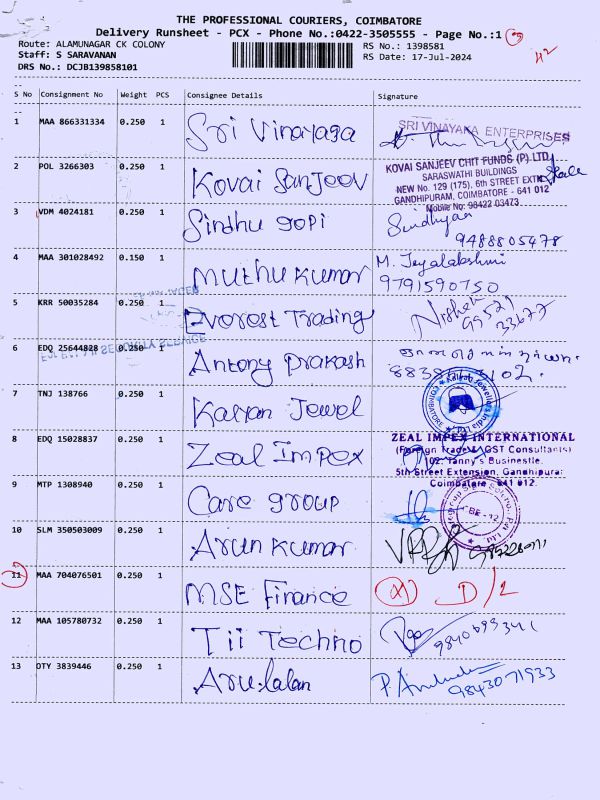 THE PROFESSIONAL COURIERS, COIMBATORE
Delivery Runsheet - PCX - Phone No.:0422-3505555 - Page No.:1
Route: ALAMUNAGAR CK COLONY
Staff: S SARAVANAN
DRS No.: DCJB139858101
RS No.: 1398581
RS Date: 17-Jul-2024
S No Consignment No Weight PCS Consignee Details Signature
1 MAA 866331334 0.250 1 Sri Vinayaga
SRI VINAYAKA ENTERPRISES
2 POL 3266303 0.250 1 Kovai Sanjeev
KOVAI SANJEEV CHIT FUNDS (P) LTD
SARASWATHI BUILDINGS
NEW No. 129 (175), 6th STREET EXTN
GANDHIPURAM, COIMBATORE - 641 012
Mobile No: 98422 03473
3 VDM 4024181 0.250 1 Sindhu gopi
9488805478
4 MAA 301028492 0.150 1 Muthu Kumar M. Jeyalakshmi
9791590750
5 KRR 50035284 0.250 1 Everest Trading
99521
33677
SECURITY SERVICE
6 EDQ 25644828 0.250 1 Antony Prakash
7 TNJ 138766 0.250 1 Kalyan Jewel
Kalyan Jewellers India
COIMBATORE
8 EDQ 15028837 0.250 1 Zeal Impex
ZEAL IMPEX INTERNATIONAL
(Foreign Trade & GST Consultants)
102, Tanny's Businestle,
5th Street Extension, Gandhipuram
Coimbatore - 641 012.
9 MTP 1308940 0.250 1 Care group
CBE-12
10 SLM 350503009 0.250 1 Arun Kumar
11 MAA 704076501 0.250 1 MSE Finance D/2
12 MAA 105780732 0.250 1 Tii Techno
9840693341
13 OTY 3839446 0.250 1 Arulalan
9843071933